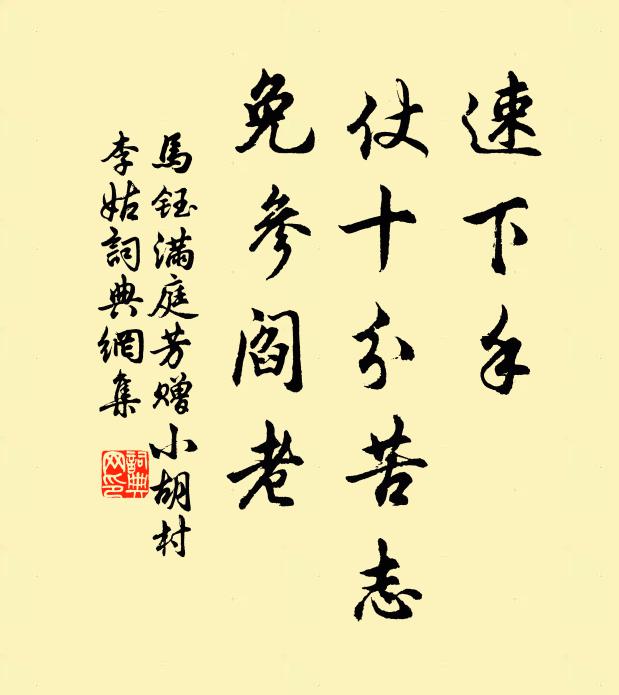 速下手
仗十分苦志
免參閻老
馬鈺滿庭芳赠小胡村
李姑詞典網集
詞典
网印